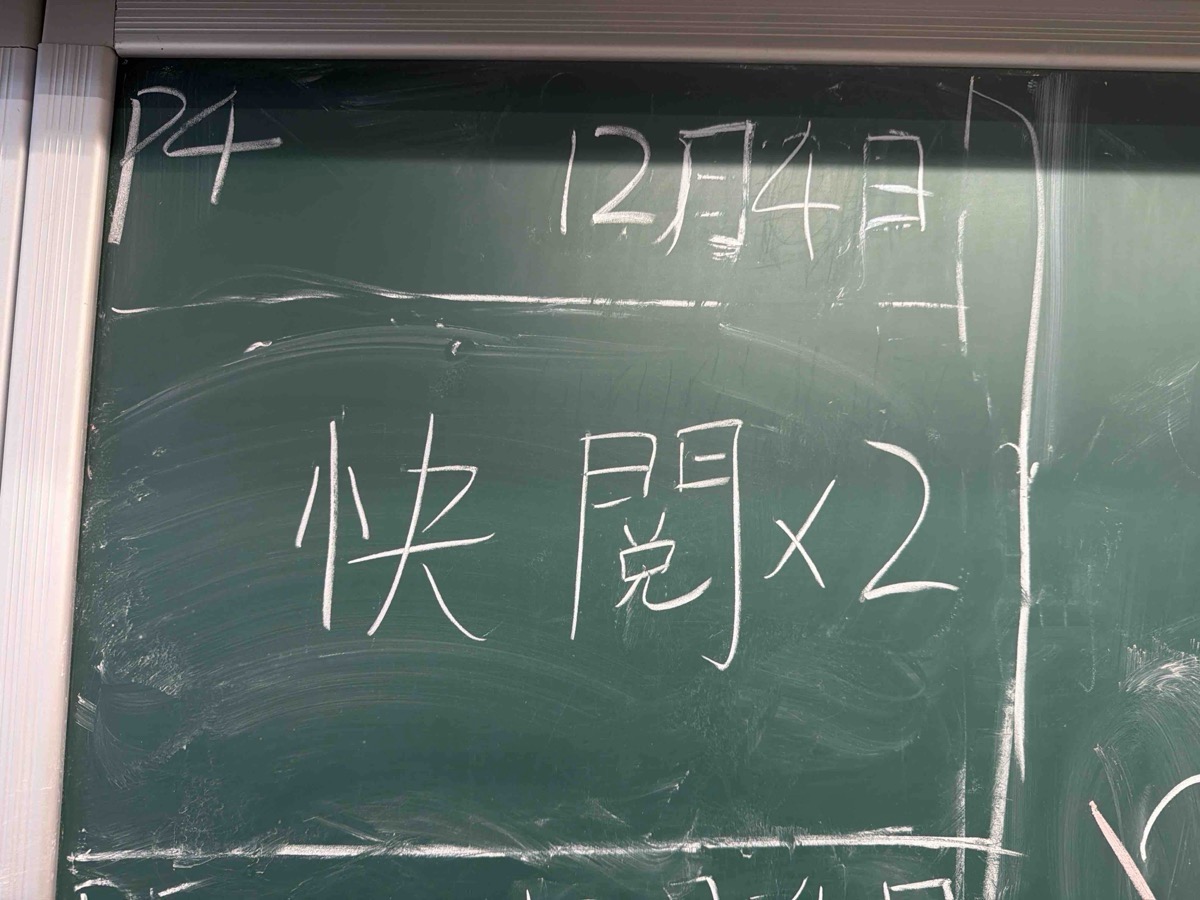 P4 12月4日
快閱×2